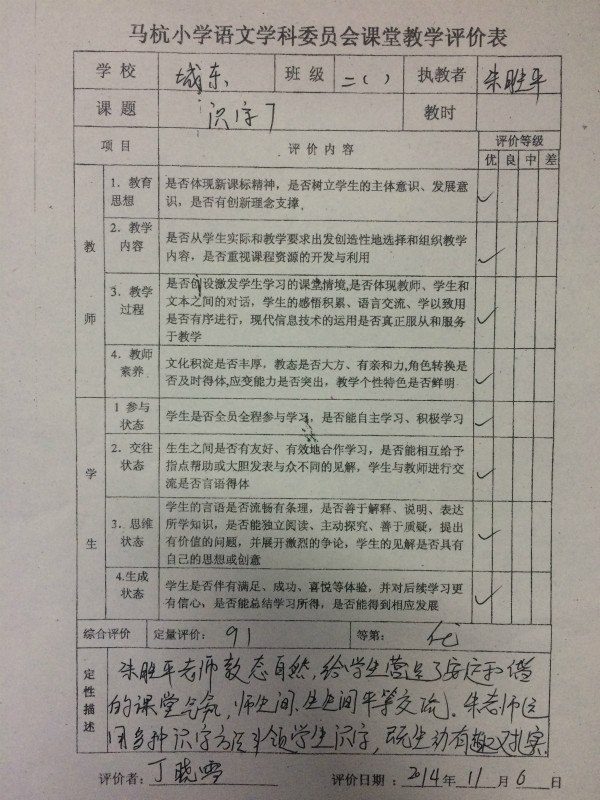 马杭小学语文学科委员会课堂教学评价表
学校 城东 班级 二( ) 执教者 朱胜平
课题 识字7 教时
项目 评价内容 评价等级
优 良 中 差
教师
1. 教育思想
是否体现新课标精神，是否树立学生的主体意识、发展意
识，是否有创新理念支撑.
2. 教学内容
是否从学生实际和教学要求出发创造性地选择和组织教学
内容，是否重视课程资源的开发与利用
3. 教学过程
是否创设激发学生学习的课堂情境,是否体现教师、学生和
文本之间的对话，学生的感悟积累、语言交流、学以致用
是否有序进行，现代信息技术的运用是否真正服从和服务
于教学
4. 教师素养
文化积淀是否丰厚，教态是否大方、有亲和力,角色转换是
否及时得体,应变能力是否突出，教学个性特色是否鲜明
学生
1 参与状态
学生是否全员全程参与学习，是否能自主学习、积极学习
2. 交往状态
生生之间是否有友好、有效地合作学习，是否能相互给予
指点帮助或大胆发表与众不同的见解，学生与教师进行交
流是否言语得体
3. 思维状态
学生的言语是否流畅有条理，是否善于解释、说明、表达
所学知识，是否能独立阅读、主动探究、善于质疑，提出
有价值的问题，并展开激烈的争论，学生的见解是否具有
自己的思想或创意
4.生成状态
学生是否伴有满足、成功、喜悦等体验，并对后续学习更
有信心，是否能总结学习所得，是否能得到相应发展
综合评价 定量评价： 91 等第： 优
定性描述
朱胜平老师教态自然，给学生营造了安定和谐
的课堂气氛，师生间、生生间平等交流。朱老师运
用多种识字方法带领学生识字，既生动有趣又扎实.
评价者：丁晓雪 评价日期：2014年11月6日